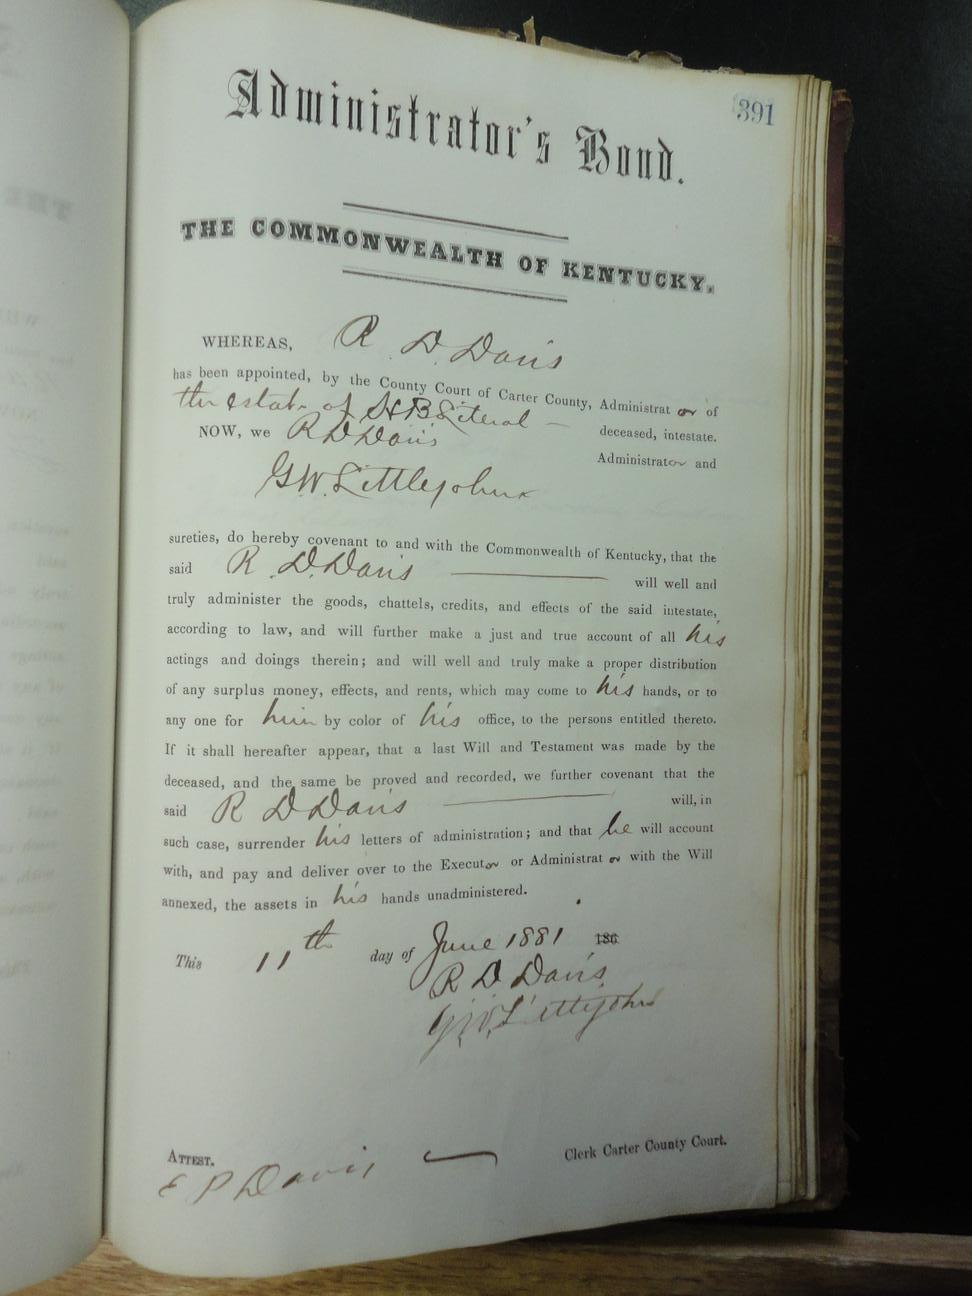 391
Administrator's Bond.
THE COMMONWEALTH OF KENTUCKY.
WHEREAS, R. D. Davis
has been appointed, by the County Court of Carter County, Administrat or of
the estate of H B Literal — deceased, intestate.
NOW, we R D Davis Administrator and
G W. Littlejohn
sureties, do hereby covenant to and with the Commonwealth of Kentucky, that the
said R. D. Davis — will well and
truly administer the goods, chattels, credits, and effects of the said intestate,
according to law, and will further make a just and true account of all his
actings and doings therein; and will well and truly make a proper distribution
of any surplus money, effects, and rents, which may come to his hands, or to
any one for him by color of his office, to the persons entitled thereto.
If it shall hereafter appear, that a last Will and Testament was made by the
deceased, and the same be proved and recorded, we further covenant that the
said R D Davis — will, in
such case, surrender his letters of administration; and that he will account
with, and pay and deliver over to the Executor or Administrat or with the Will
annexed, the assets in his hands unadministered.
This 11th day of June 1881 186
R D Davis
G. W. Littlejohn
ATTEST.
E P Davis — Clerk Carter County Court.